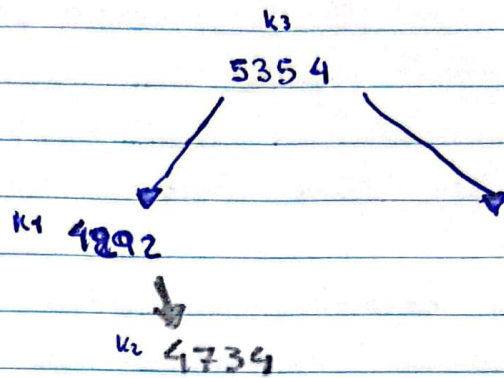 K3
5354
K1 4892
K2 4734